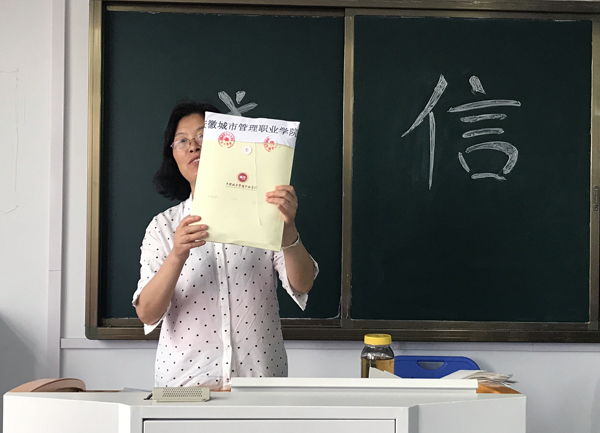 信
徽城市管理职业学院